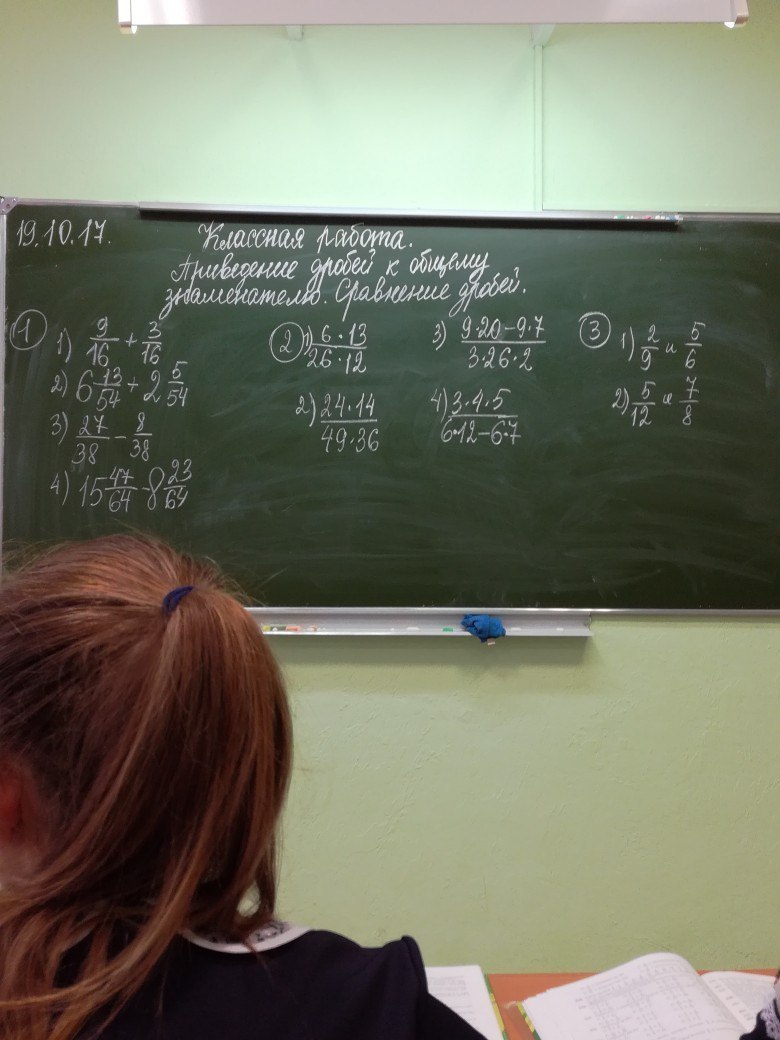 19.10.17.
Классная работа.
Приведение дробей к общему
знаменателю. Сравнение дробей.
①
1) 9/16 + 3/16
2) 6 13/54 + 2 5/54
3) 27/38 − 8/38
4) 15 47/64 − 8 23/64
②
1) 6·13/26·12
2) 24·14/49·36
3) 9·20−9·7/3·26·2
4) 3·4·5/6·12−6·7
③
1) 2/9 и 5/6
2) 5/12 и 7/8